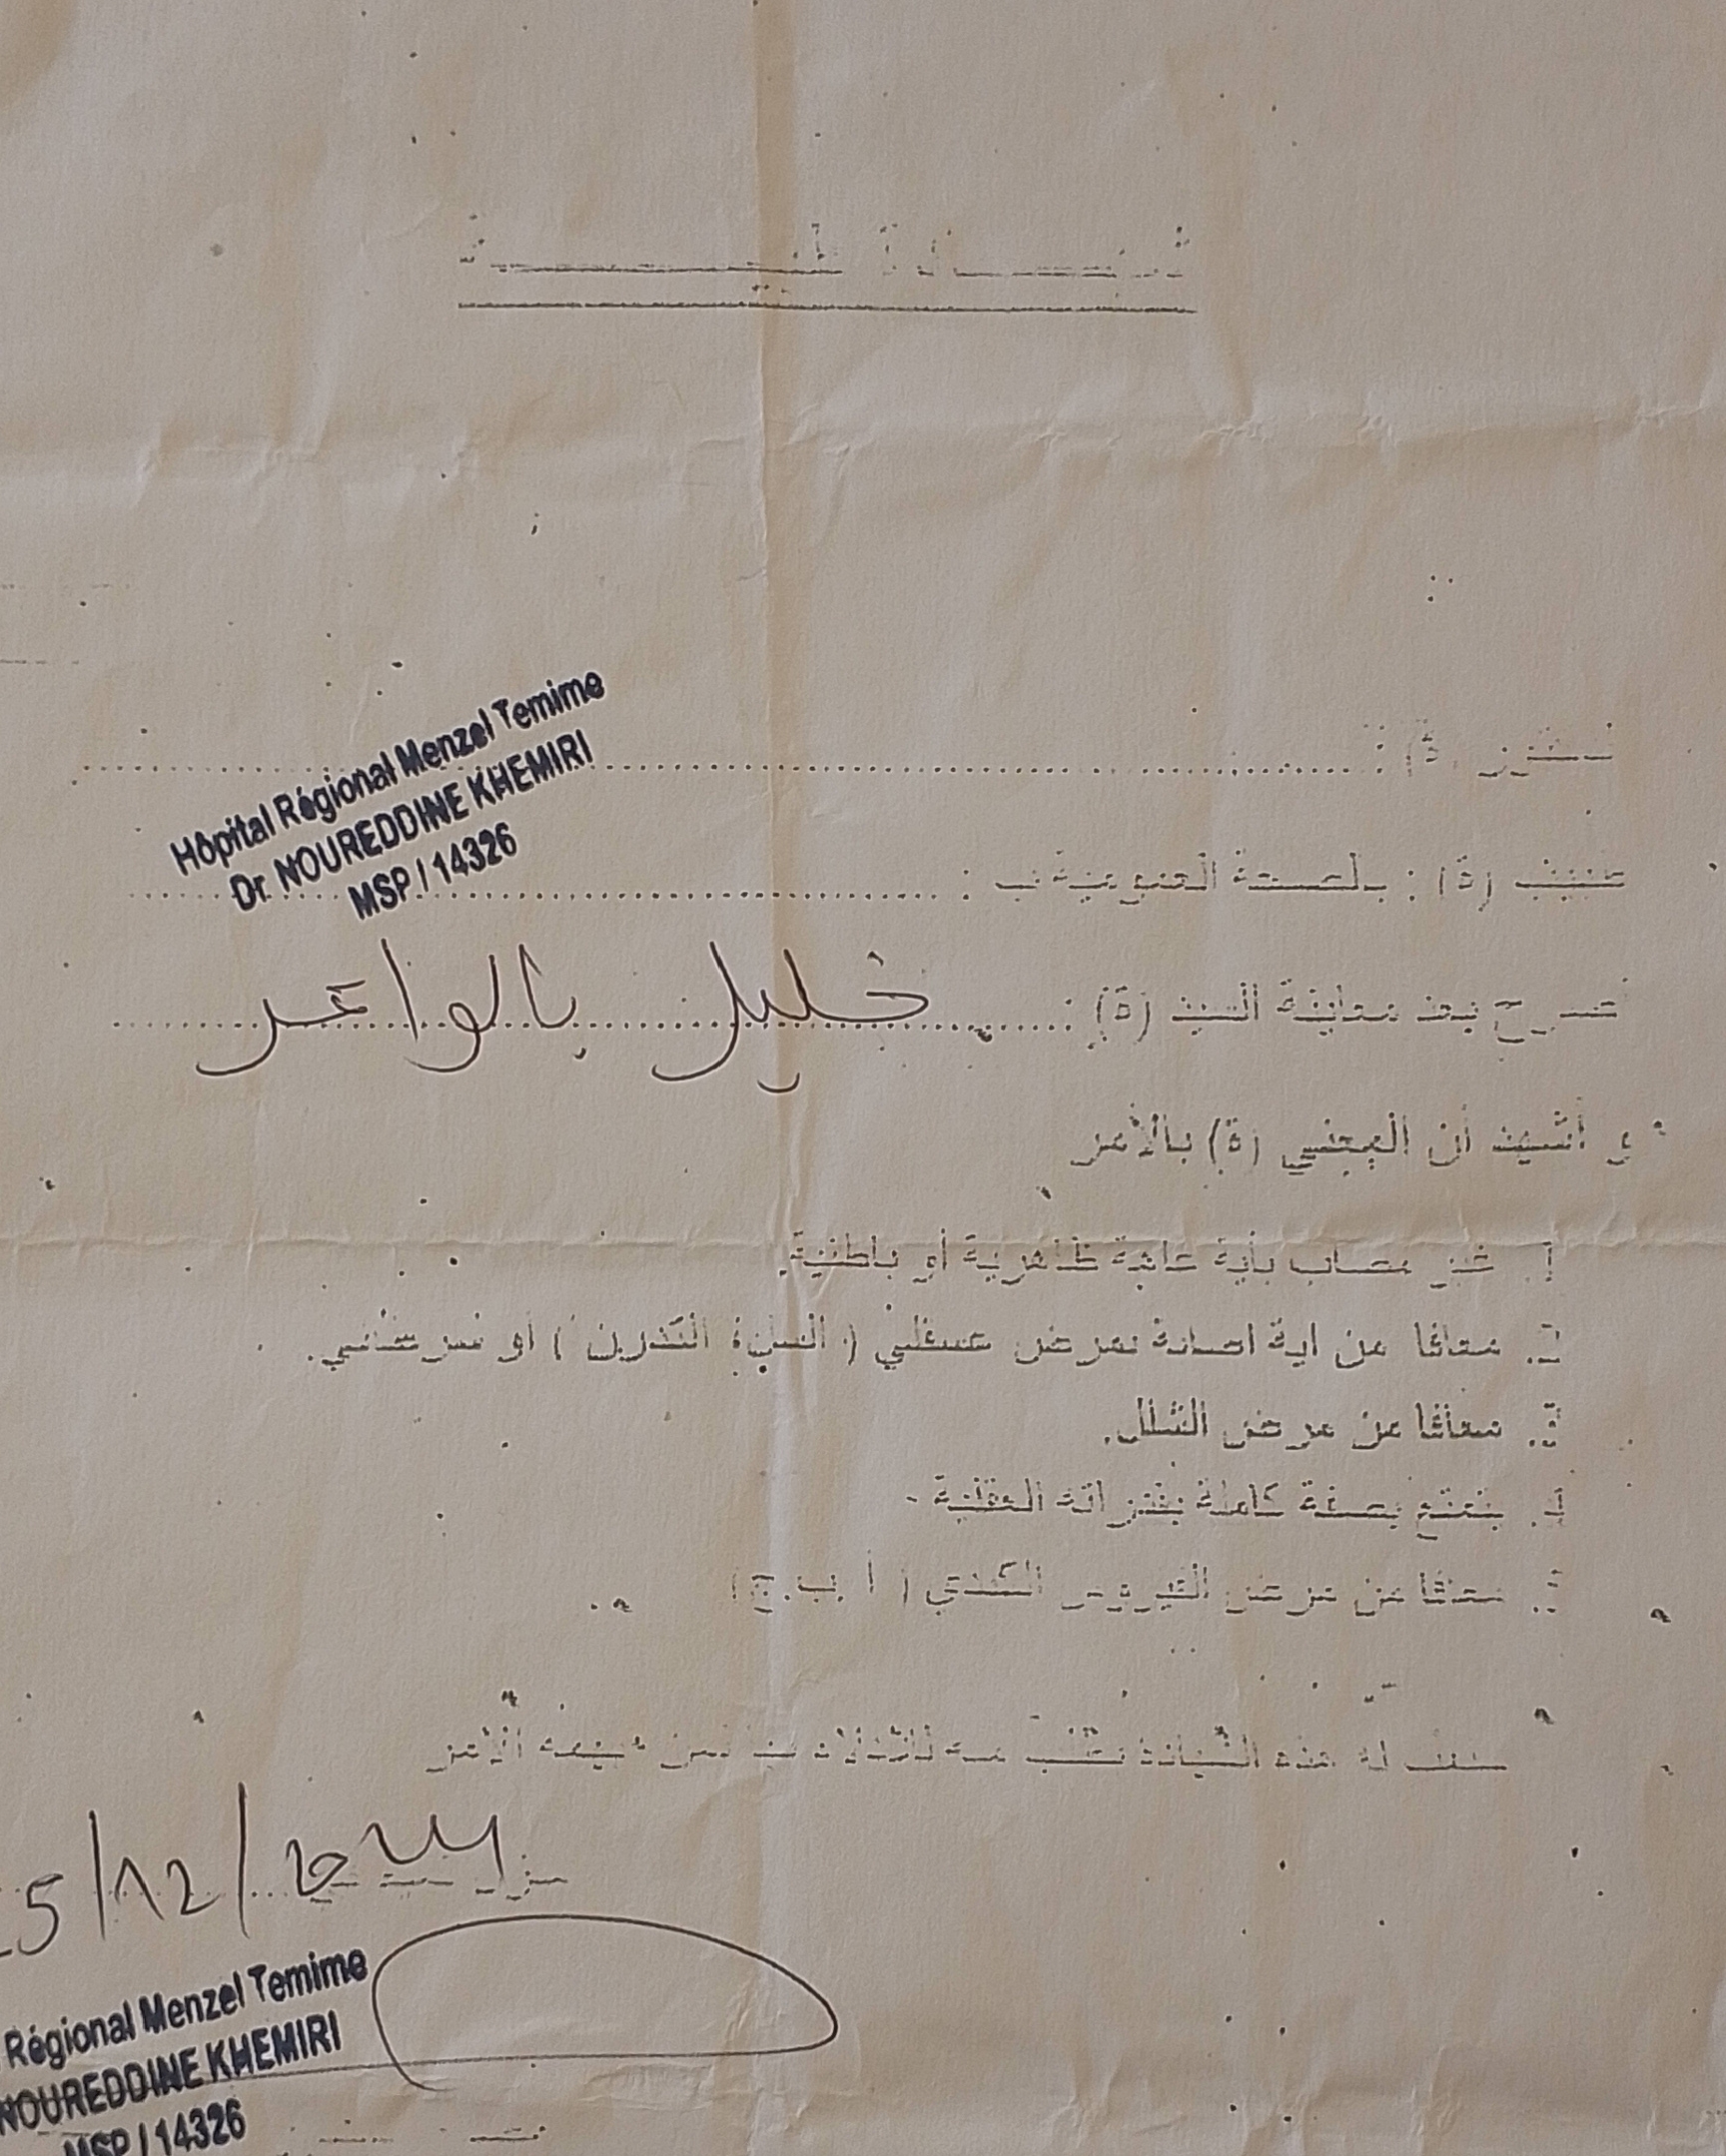 شهادة طبية
Hôpital Régional Menzel Temime
Dr. NOUREDDINE KHEMIRI
MSP / 14326
طبيب (ة) : بالصحة العمومية ب :
أصرح بعد معاينة السيد (ة) : خليل بالواعر
و أثبت أن المعني (ة) بالأمر
أ. غير مصاب بأية عاهة ظاهرية أو باطنية.
ب. معافا من أية اصابة بمرض عضلي ( السل، التدرن ) أو
ت. معافا من مرض الشلل.
ث. يتمتع بصفة كاملة بقدراته العقلية
ج. معافا من مرض الفيروس الكبدي ( أ . ب . ج )
سلمت له هذه الشهادة بطلب منه للإدلاء بها لمن يهمه الأمر
5/12/2024
Régional Menzel Temime
NOUREDDINE KHEMIRI
MSP / 14326